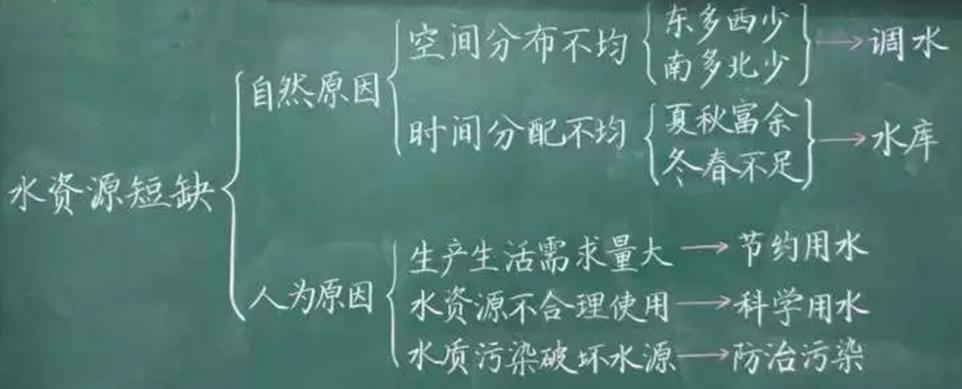 水资源短缺
自然原因
空间分布不均
东多西少
南多北少
调水
时间分配不均
夏秋富余
冬春不足
水库
人为原因
生产生活需求量大→节约用水
水资源不合理使用→科学用水
水质污染破坏水源→防治污染